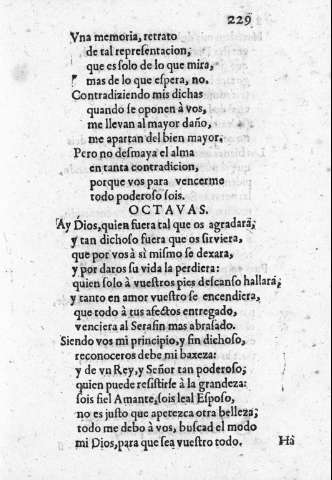 229
Vna memoria, retrato
de tal representacion,
que es solo de lo que mira,
mas de lo que espera, no.
Contradiziendo mis dichas
quando se oponen à vos,
me llevan al mayor daño,
me apartan del bien mayor.
Pero no desmaya el alma
en tanta contradicion,
porque vos para vencerme
todo poderoso sois.
OCTAVAS.
Ay Dios, quien fuera tal que os agradara,
y tan dichoso fuera que os sirviera,
que por vos à si mismo se dexara,
y por daros su vida la perdiera:
quien solo à vuestros pies descanso hallara,
y tanto en amor vuestro se encendiera,
que todo à tus afectos entregado,
venciera al Serafin mas abrasado.
Siendo vos mi principio, y fin dichoso,
reconoceros debe mi baxeza:
y de vn Rey, y Señor tan poderoso,
quien puede resistirse à la grandeza:
sois fiel Amante, sois leal Esposo,
no es justo que apetezca otra belleza;
todo me debo à vos, buscad el modo
mi Dios, para que sea vuestro todo.
Ha